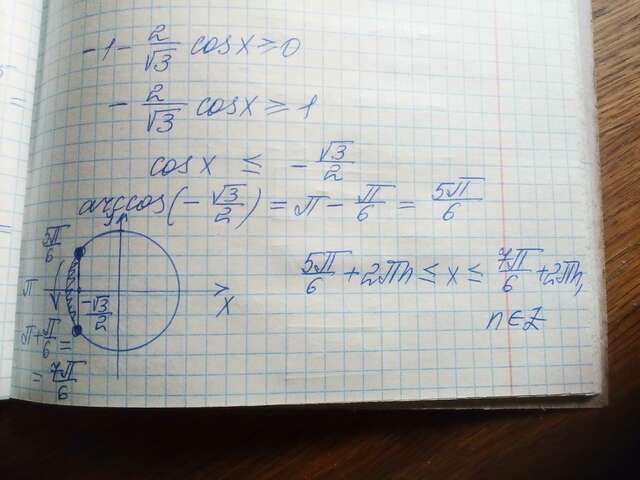 -1 - 2/√3 cos x ≥ 0
- 2/√3 cos x ≥ 1
cos x ≤ - √3/2
arccos(- √3/2) = π - π/6 = 5π/6
y
5π/6
π
- √3/2
x
π + π/6 =
= 7π/6
5π/6 + 2πn ≤ x ≤ 7π/6 + 2πn,
n ∈ Z